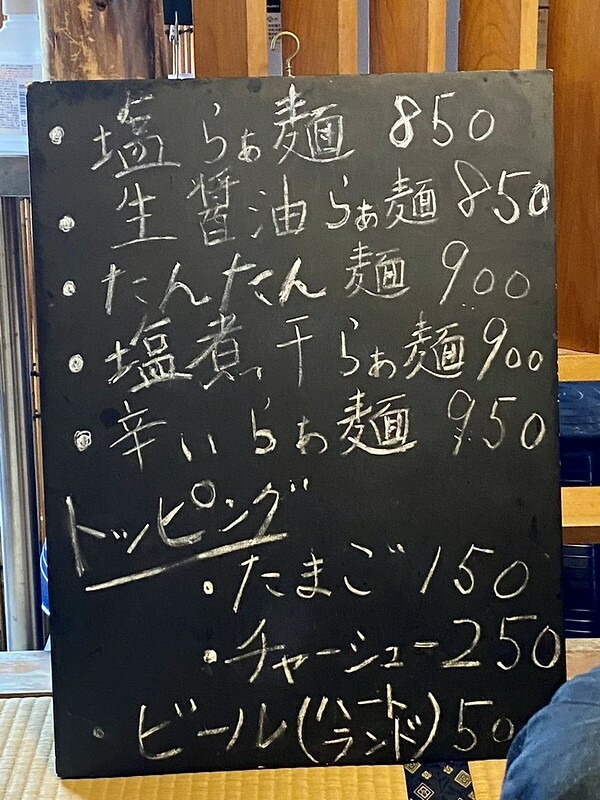 ・塩らぁ麺 850
・生醤油らぁ麺 850
・たんたん麺 900
・塩煮干らぁ麺 900
・辛いらぁ麺 950
トッピング
・たまご 150
・チャーシュー 250
・ビール(ハートランド) 50